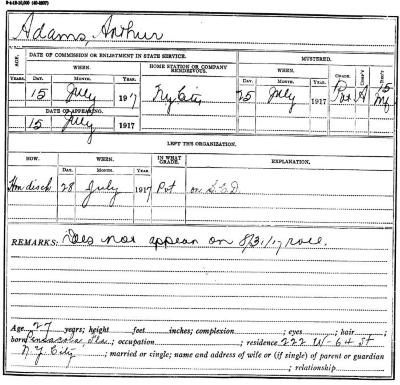 Adams, Arthur
AGE. DATE OF COMMISSION OR ENLISTMENT IN STATE SERVICE. HOME STATION OR COMPANY RENDEZVOUS. MUSTERED. GRADE. COMP'Y REG'T
YEARS. WHEN. WHEN.
DAY. MONTH. YEAR. DAY. MONTH. YEAR.
15 July 1917 N.Y. City 25 July 1917 Pvt A 15 Inf
DATE OF APPEARING.
15 July 1917
LEFT THE ORGANIZATION.
HOW. WHEN. IN WHAT GRADE. EXPLANATION.
DAY. MONTH. YEAR.
Hon disch 28 July 1917 Pvt on S.C.D.
REMARKS: Does not appear on 8/31/17 roll.
Age 27 years; height feet inches; complexion ; eyes ; hair ;
born Pensacola, Fla.; occupation ; residence 222 W-64 St
N.Y. City ; married or single; name and address of wife or (if single) of parent or guardian
; relationship